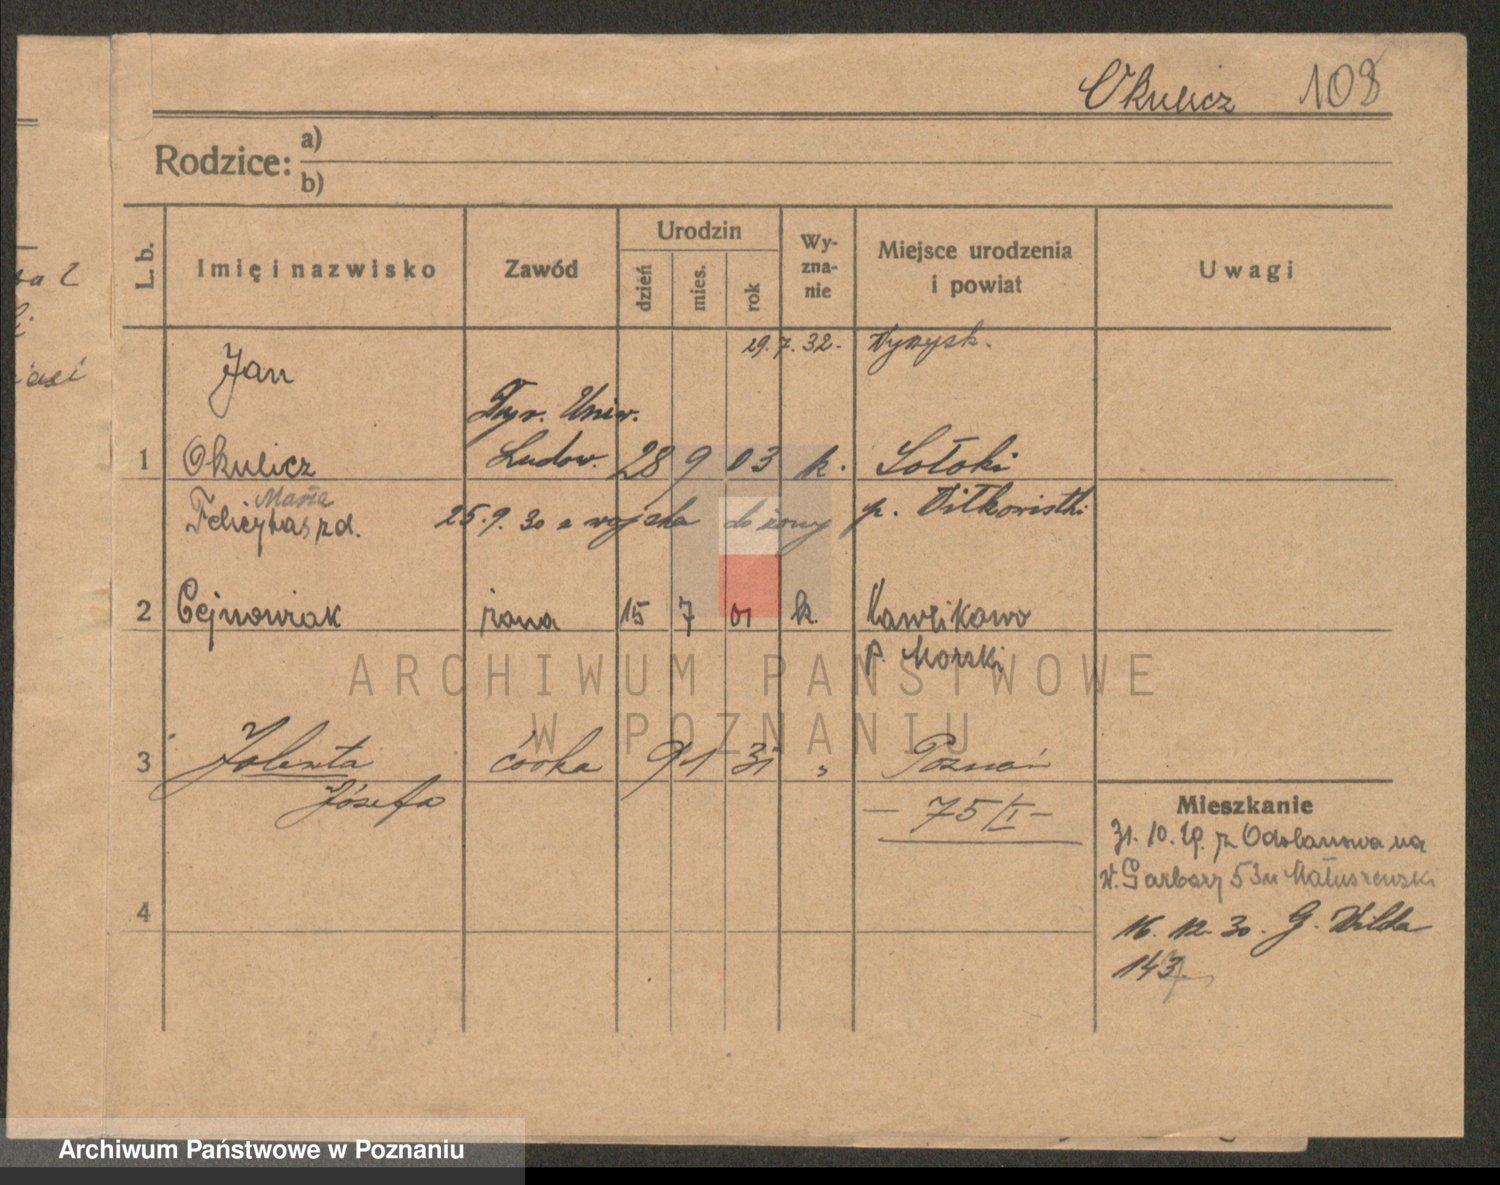 Okulicz 108
Rodzice: a)
b)
L. b. Imię i nazwisko Zawód Urodzin dzień mies. rok Wyznanie Miejsce urodzenia i powiat Uwagi
29. 7. 32. Wyrzysk.
Jan
Dyr. Uniw.
1 Okulicz Ludow. 28 9 03 k. Sołoki
Maria
Felicytas zd. 25. 9. 30 z wojska do żony p. Wiłkowistki
2 Cejnowiak żona 15 7 01 k. Kawlikowo
p. Morski
ARCHIWUM PAŃSTWOWE
W POZNANIU
3 Jolenta córka 9 1 31 " Poznań
Józefa
– 75/I –
Mieszkanie
31. 10. 29. z Odolanowa na
W. Garbary 53 u Matuszewski
4
16. 12. 30. G. Wilda
147
Archiwum Państwowe w Poznaniu